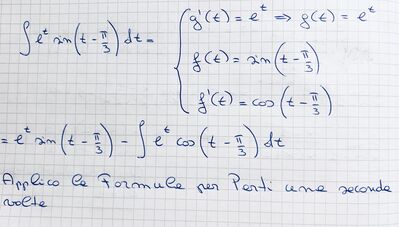 ∫ e^t sin(t - π/3) dt = { g'(t) = e^t ⇒ g(t) = e^t
f(t) = sin(t - π/3)
f'(t) = cos(t - π/3)
= e^t sin(t - π/3) - ∫ e^t cos(t - π/3) dt
Applico la Formula per Parti una seconda
volta